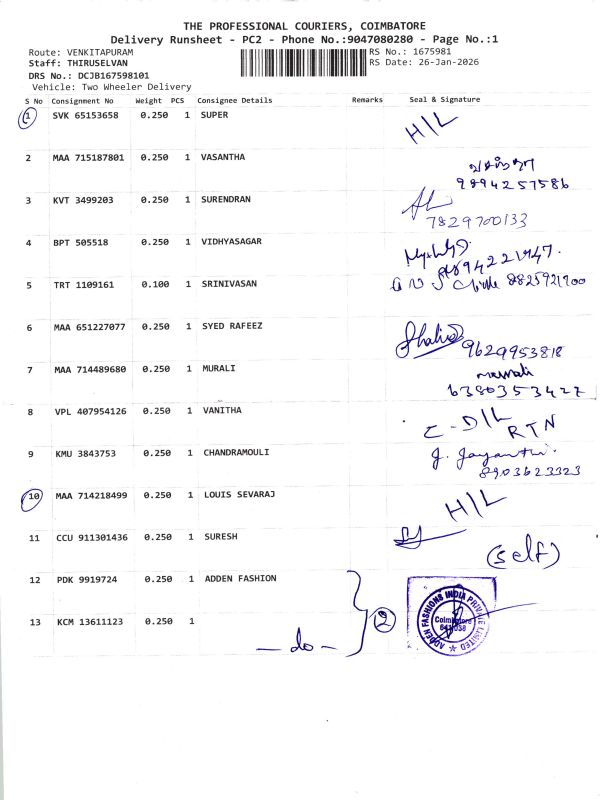 THE PROFESSIONAL COURIERS, COIMBATORE
Delivery Runsheet - PC2 - Phone No.:9047080280 - Page No.:1
Route: VENKITAPURAM RS No.: 1675981
Staff: THIRUSELVAN RS Date: 26-Jan-2026
DRS No.: DCJB167598101
Vehicle: Two Wheeler Delivery
S No Consignment No Weight PCS Consignee Details Remarks Seal & Signature
1 SVK 65153658 0.250 1 SUPER H/L
2 MAA 715187801 0.250 1 VASANTHA வசந்தா
9894257586
3 KVT 3499203 0.250 1 SURENDRAN
7829700133
4 BPT 505518 0.250 1 VIDHYASAGAR
5 TRT 1109161 0.100 1 SRINIVASAN 8825921700
6 MAA 651227077 0.250 1 SYED RAFEEZ
9629953818
7 MAA 714489680 0.250 1 MURALI murali
6380353427
8 VPL 407954126 0.250 1 VANITHA C-D/L RTN
9 KMU 3843753 0.250 1 CHANDRAMOULI J. Jayanthi.
8903623323
10 MAA 714218499 0.250 1 LOUIS SEVARAJ H/L
11 CCU 911301436 0.250 1 SURESH (self)
12 PDK 9919724 0.250 1 ADDEN FASHION
13 KCM 13611123 0.250 1 — do — 2
ADDEN FASHIONS INDIA PRIVATE LIMITED
Coimbatore